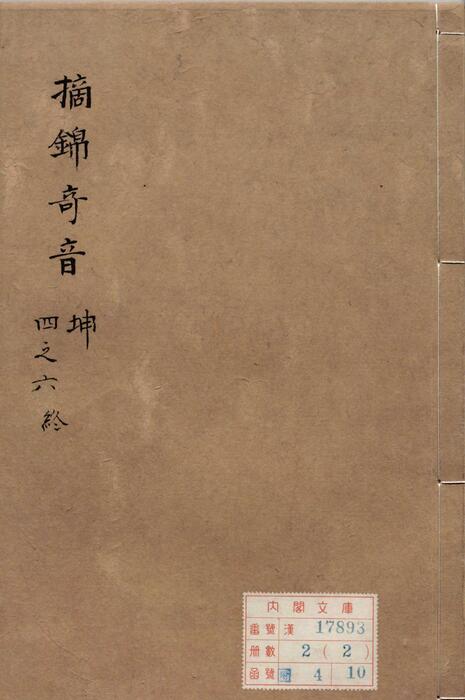 摘錦奇音
坤
四之六終
内閣文庫
番號 漢 17893
册數 2 (2)
函號 4 10